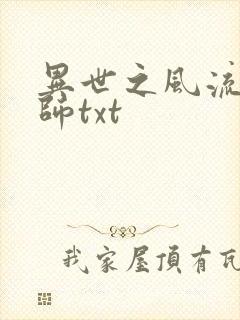 異世之風流
師txt
我家屋頂有瓦